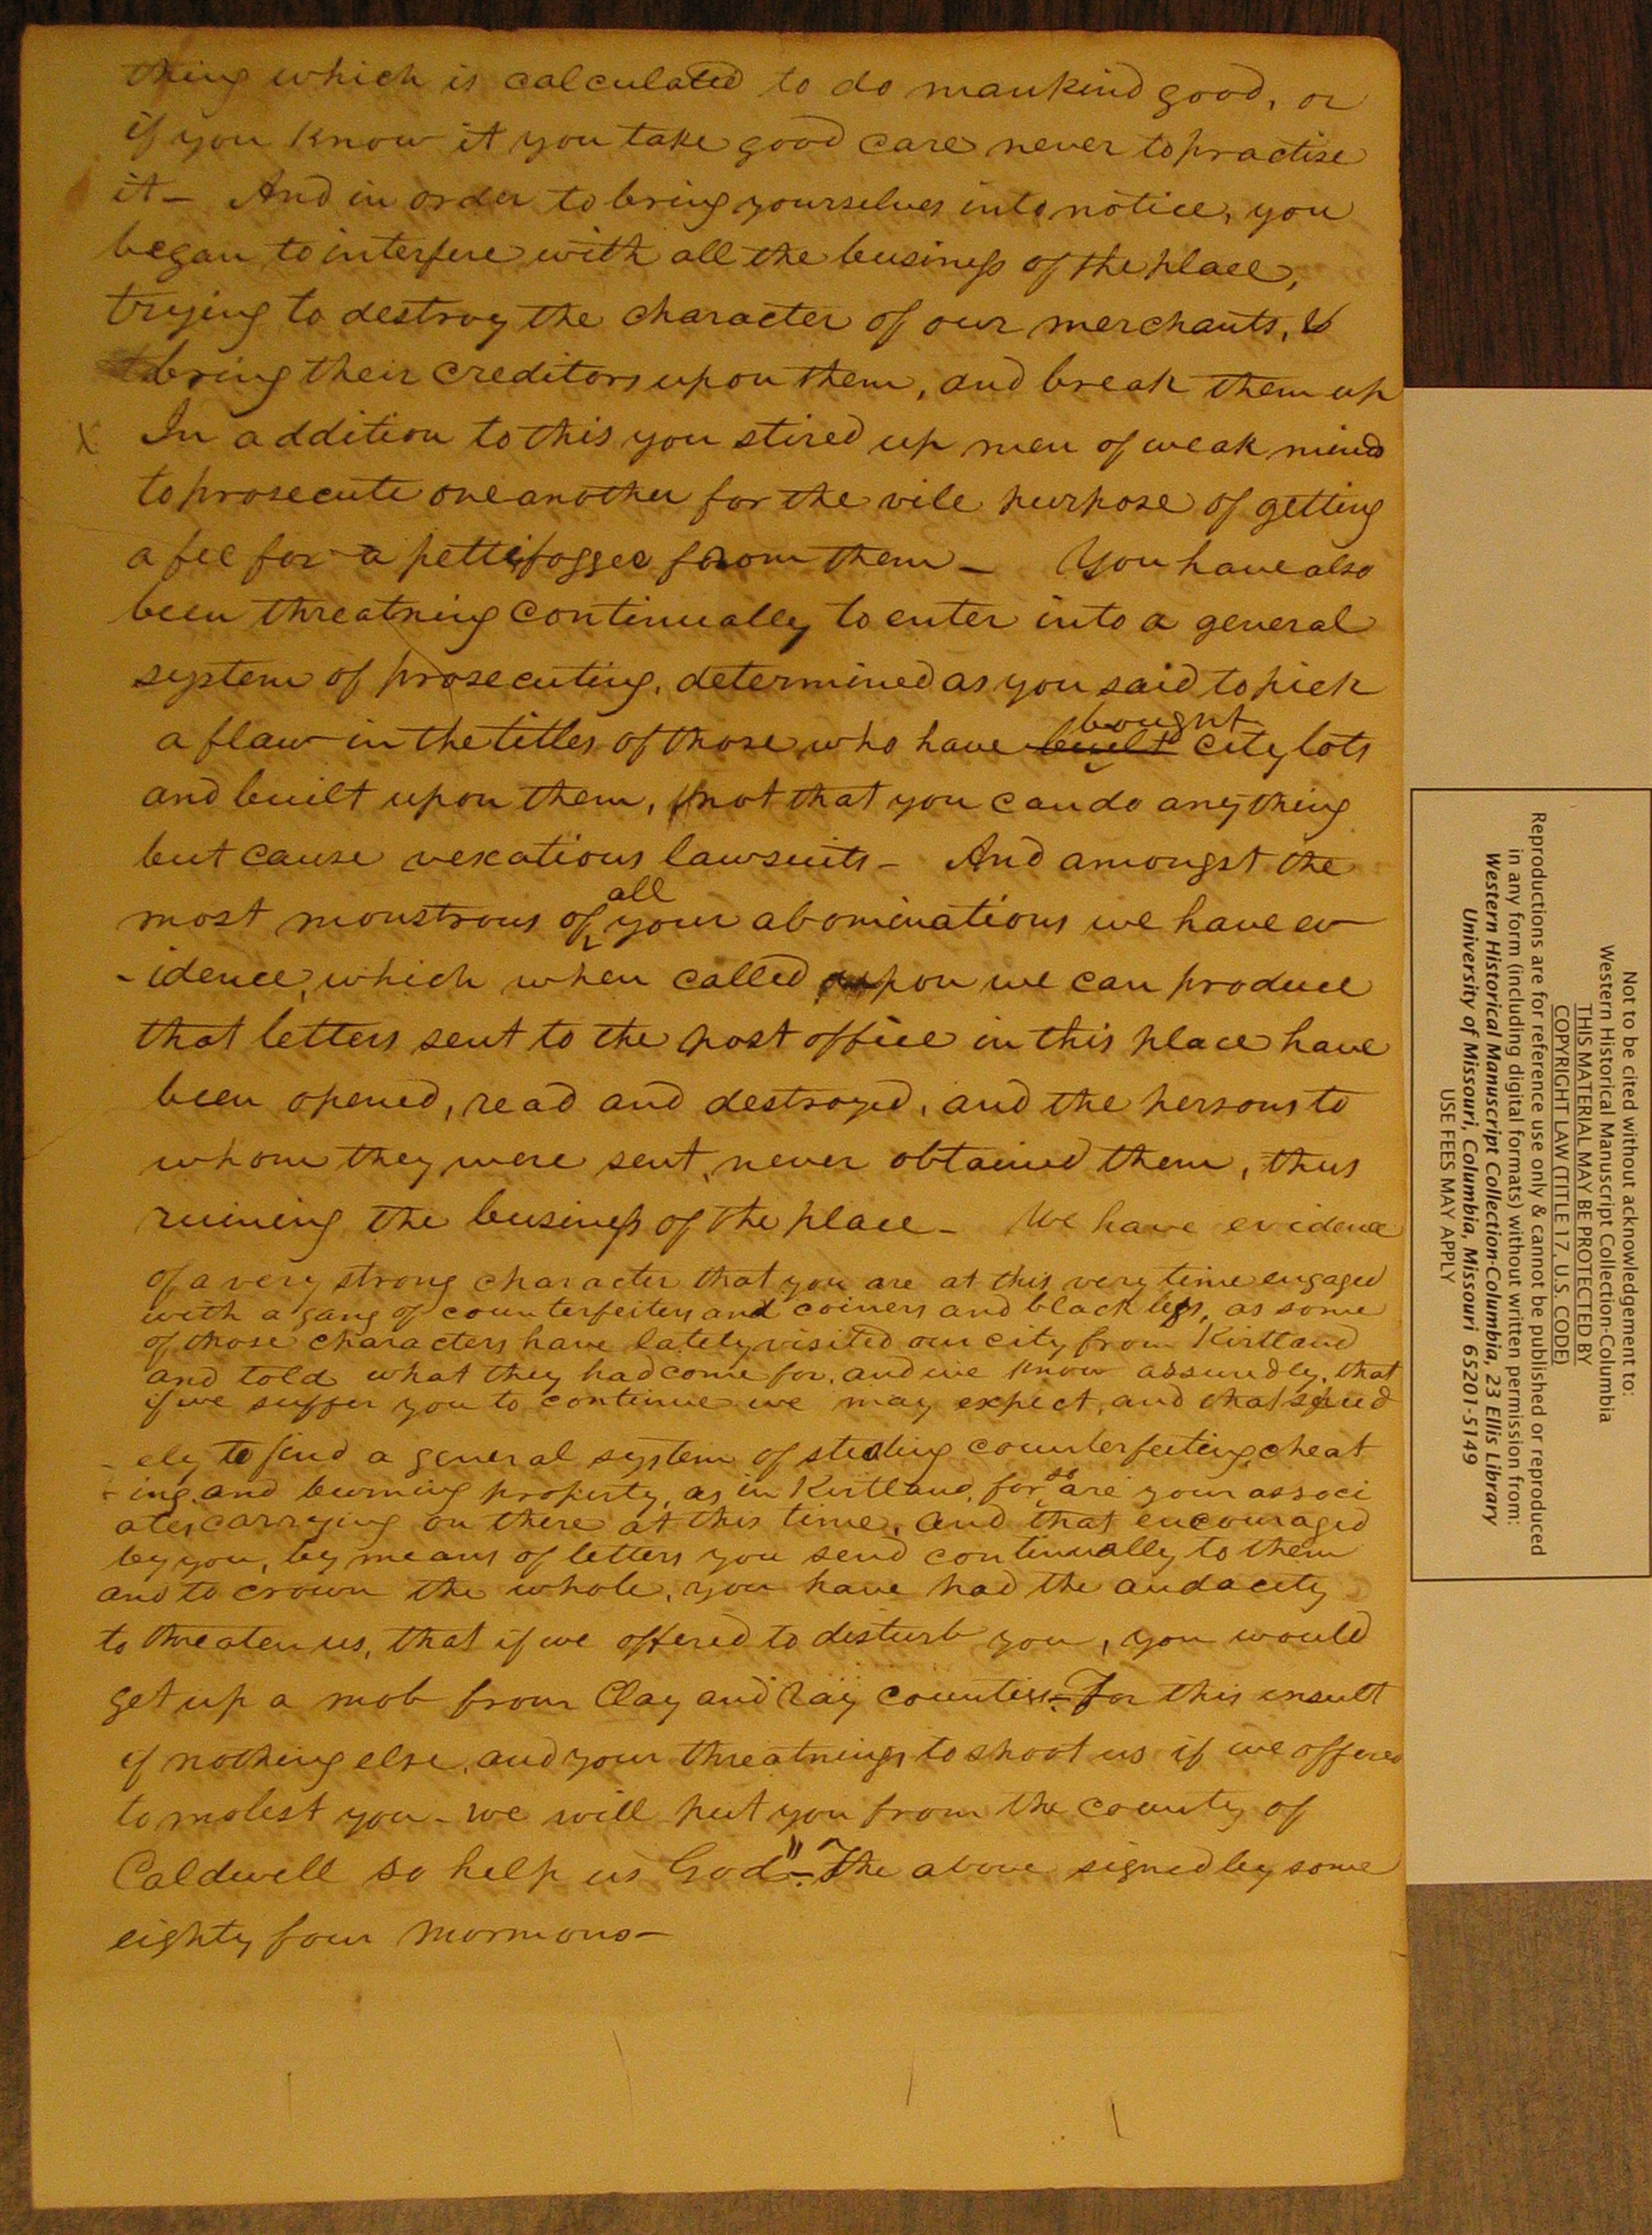 thing which is calculated to do mankind good, or
if you know it you take good care never to practise
it — And in order to bring yourselves into notice, you
began to interfere with all the business of the place,
trying to destroy the character of our merchants, &
bring their creditors upon them, and break them up
x In addition to this you stired up men of weak minds
to prosecute one another for the vile purpose of getting
a fee for a pettifogger from them — You have also
been threatning continually to enter into a general
system of prosecuting, determined as you said to pick
bought
a flaw in the titles of those who have built city lots
and built upon them, not that you can do any thing
but cause vexatious lawsuits — And amongst the
all
most monstrous of your abominations we have ev
-idence, which when called upon we can produce
that letters sent to the post office in this place have
been opened, read and destroyed, and the persons to
whom they were sent, never obtained them, thus
ruining the business of the place — We have evidence
of a very strong character that you are at this very time engaged
with a gang of counterfeiters and coiners and black legs, as some
of those characters have lately visited our city from Kirtland
and told what they had come for, and we know assuredly, that
if we suffer you to continue we may expect, and that speed
- ely to find a general system of stealing counterfeiting, cheat
- ing, and burning property, as in Kirtland, for so are your associ
ates carrying on there at this time, and that encouraged
by you, by means of letters you send continually to them
and to crown the whole, you have had the audacity
to threaten us, that if we offered to disturb you, you would
get up a mob from Clay and Ray counties — For this insult
if nothing else, and your threatnings to shoot us if we offered
to molest you — we will put you from the county of
Caldwell so help us God" — The above signed by some
eighty four Mormons —
Not to be cited without acknowledgement to:
Western Historical Manuscript Collection-Columbia
THIS MATERIAL MAY BE PROTECTED BY
COPYRIGHT LAW (TITLE 17, U.S. CODE)
Reproductions are for reference use only & cannot be published or reproduced
in any form (including digital formats) without written permission from:
Western Historical Manuscript Collection-Columbia, 23 Ellis Library
University of Missouri, Columbia, Missouri 65201-5149
USE FEES MAY APPLY